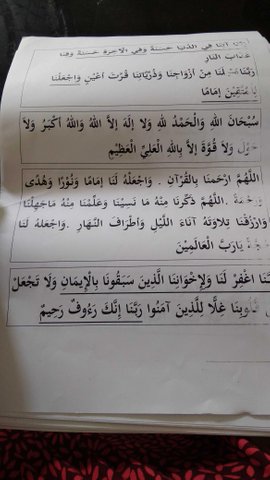 آتنا في الدنيا حسنة وفي الآخرة حسنة وقنا
عذاب النار
رَبَّنَا هَبْ لَنَا مِنْ أَزْوَاجِنَا وَذُرِّيَّاتِنَا قُرَّتَ أَعْيُنٍ وَاجْعَلْنَا
إِمَامًا
سُبْحَانَ اللَّهِ وَالْحَمْدُ لِلَّهِ وَلَا إِلَهَ إِلَّا اللَّهُ وَاللَّهُ أَكْبَرُ وَلَا
حَوْلَ وَلَا قُوَّةَ إِلَّا بِاللَّهِ الْعَلِيِّ الْعَظِيْمِ
اللَّهُمَّ ارْحَمْنَا بِالْقُرْآنِ . وَاجْعَلْهُ لَنَا إِمَامًا وَنُوْرًا وَهُدًى
اللَّهُمَّ ذَكِّرْنَا مِنْهُ مَا نَسِيْنَا وَعَلِّمْنَا مِنْهُ مَاجَهِلْنَا
وَارْزُقْنَا تِلَاوَتَهُ آنَاءَ اللَّيْلِ وَأَطْرَافَ النَّهَارِ .وَاجْعَلْهُ لَنَا
يَارَبَّ الْعَالَمِيْنَ
اغْفِرْ لَنَا وَلِإِخْوَانِنَا الَّذِينَ سَبَقُونَا بِالْإِيمَانِ وَلَا تَجْعَلْ
قُلُوبِنَا غِلًّا لِلَّذِينَ آمَنُوا رَبَّنَا إِنَّكَ رَءُوفٌ رَحِيمٌ